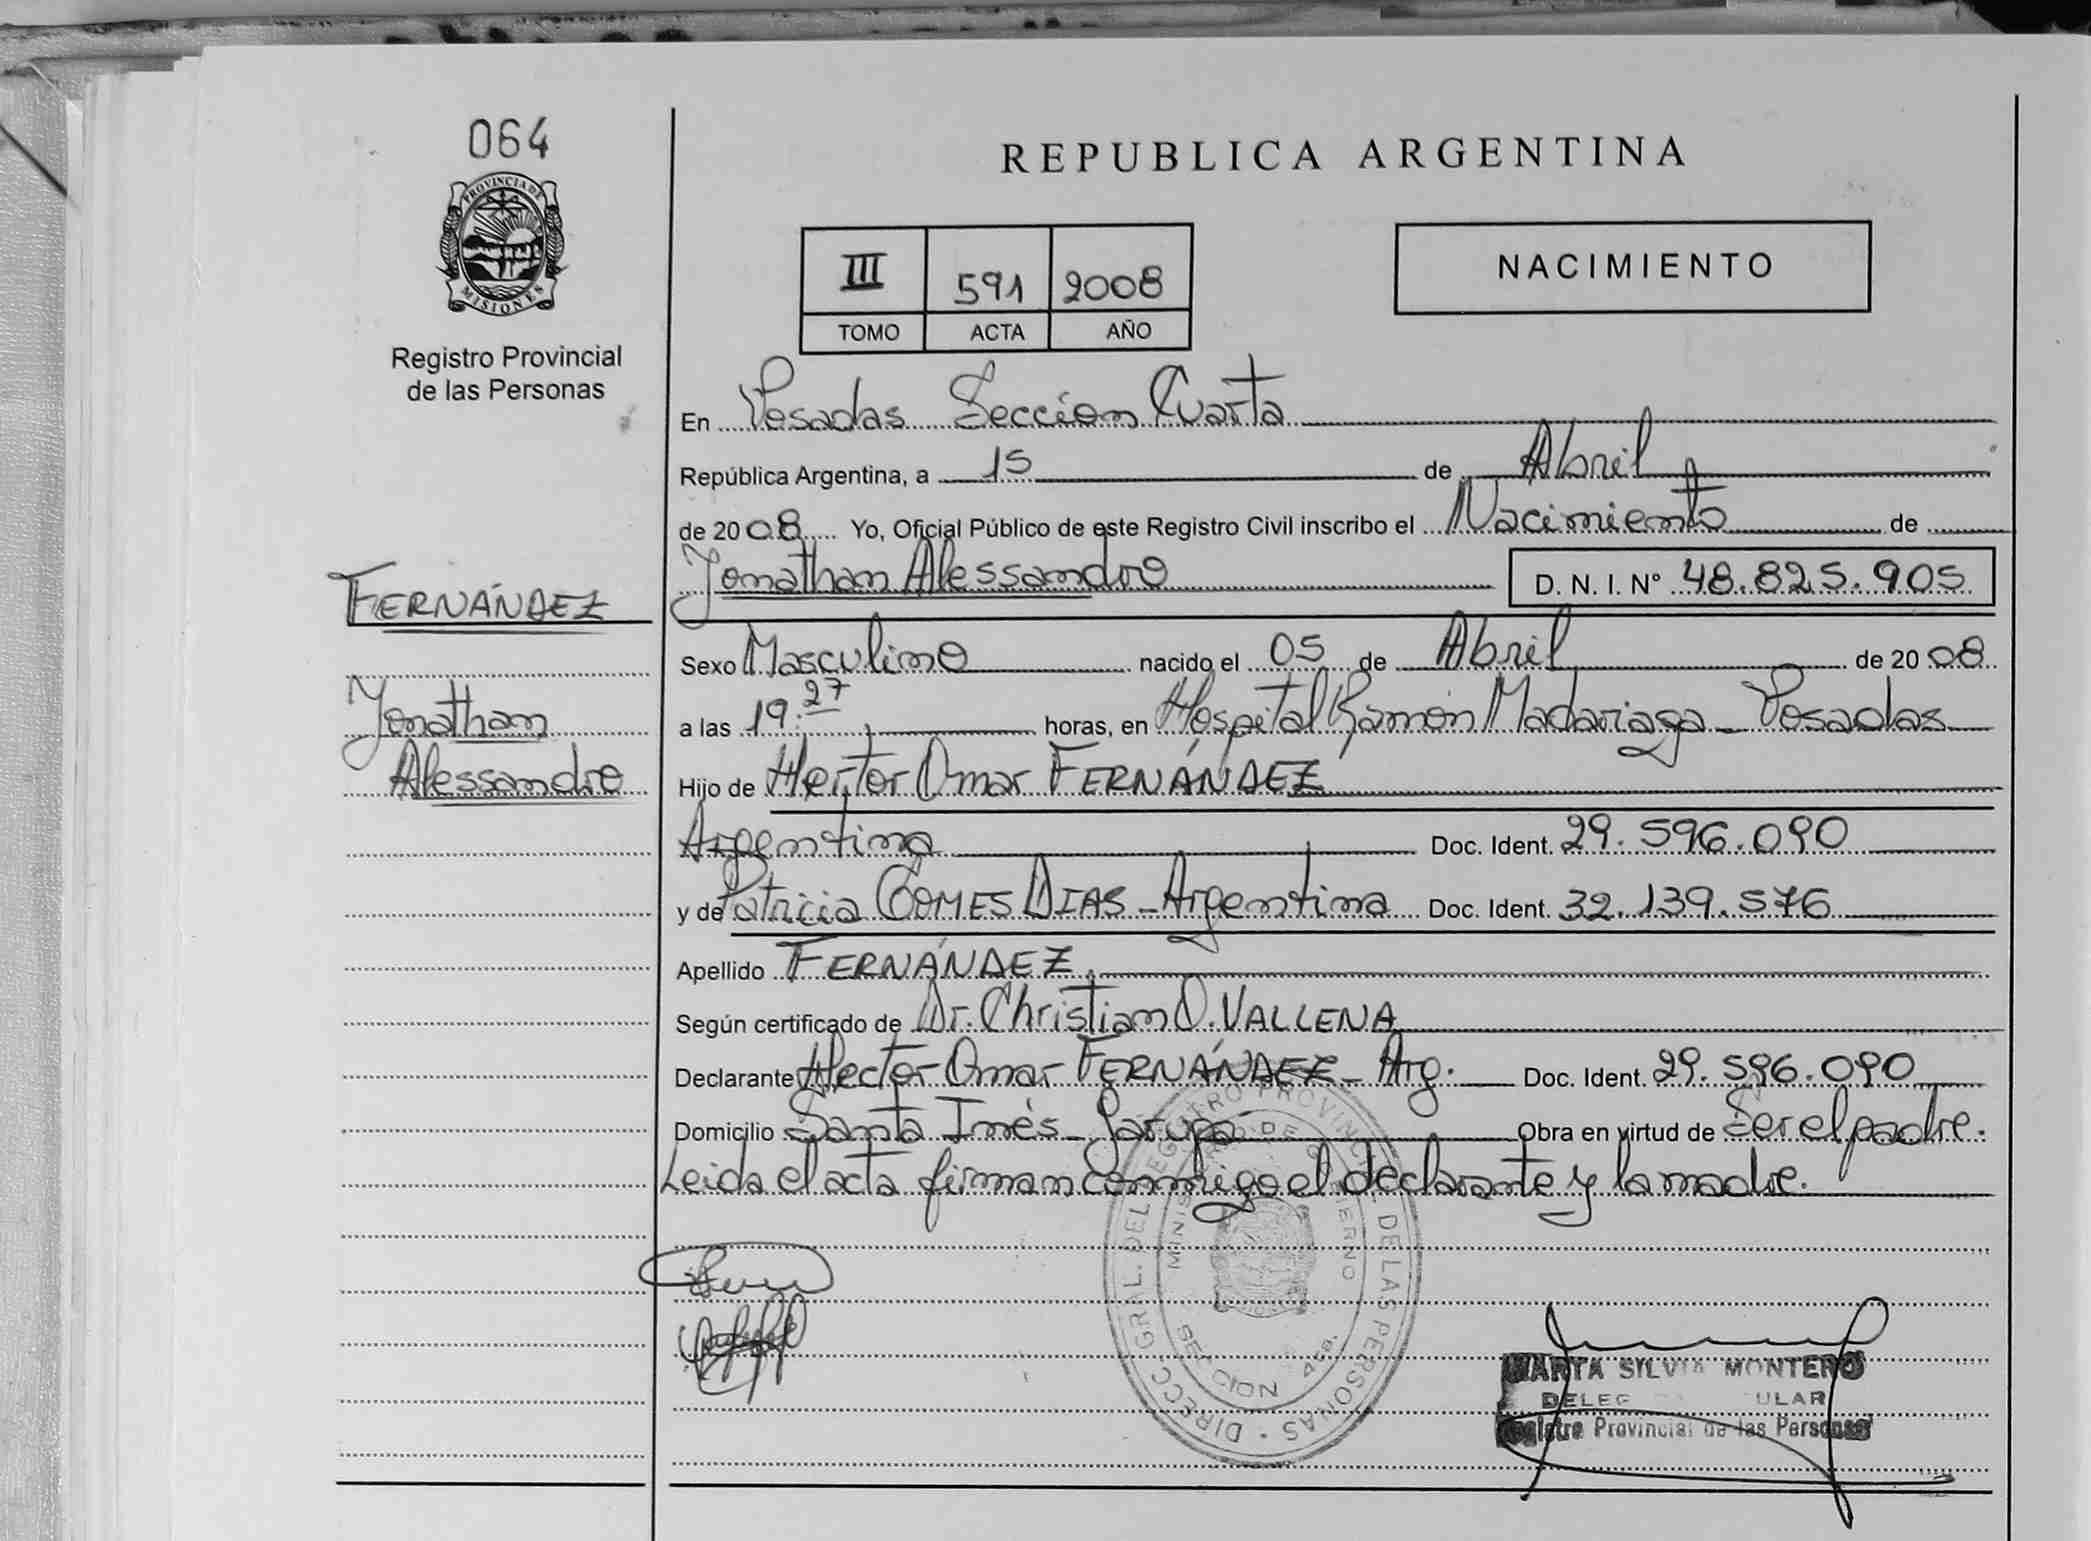 064
PROVINCIA DE
MISIONES
Registro Provincial
de las Personas
REPUBLICA ARGENTINA
III 591 2008
TOMO ACTA AÑO
NACIMIENTO
En Posadas Sección Cuarta
República Argentina, a 15 de Abril
de 2008 Yo, Oficial Público de este Registro Civil inscribo el Nacimiento de
Jonathan Alessandro D. N. I. N° 48.825.905
FERNÁNDEZ
Jonathan
Alessandro
Sexo Masculino nacido el 05 de Abril de 2008
a las 19:27 horas, en Hospital Ramón Madariaga - Posadas
Hijo de Héctor Omar FERNÁNDEZ
Argentina Doc. Ident. 29.596.090
y de Patricia GOMES DIAS - Argentina Doc. Ident. 32.139.576
Apellido FERNÁNDEZ
Según certificado de Dr. Christian O. VALLENA
Declarante Héctor Omar FERNÁNDEZ - Arg. Doc. Ident. 29.596.090
Domicilio Santa Inés - Garupa Obra en virtud de Ser el padre.
Leida el acta firman conmigo el declarante y la madre.
DIRECC. GRAL. DEL REGISTRO PROVINCIAL DE LAS PERSONAS
SECCION 4ta.
MARTA SILVIA MONTERO
Registro Provincial de las Personas